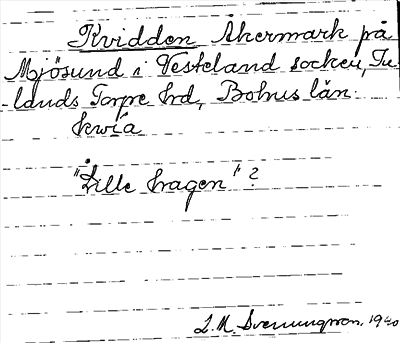 Kvidden Åkermark på
Mjösund i Vesteland socken, In-
-lands Torpe hrd, Bohus län.
kwia
"Lille hagen"?
L.M. Svenungsson. 1940